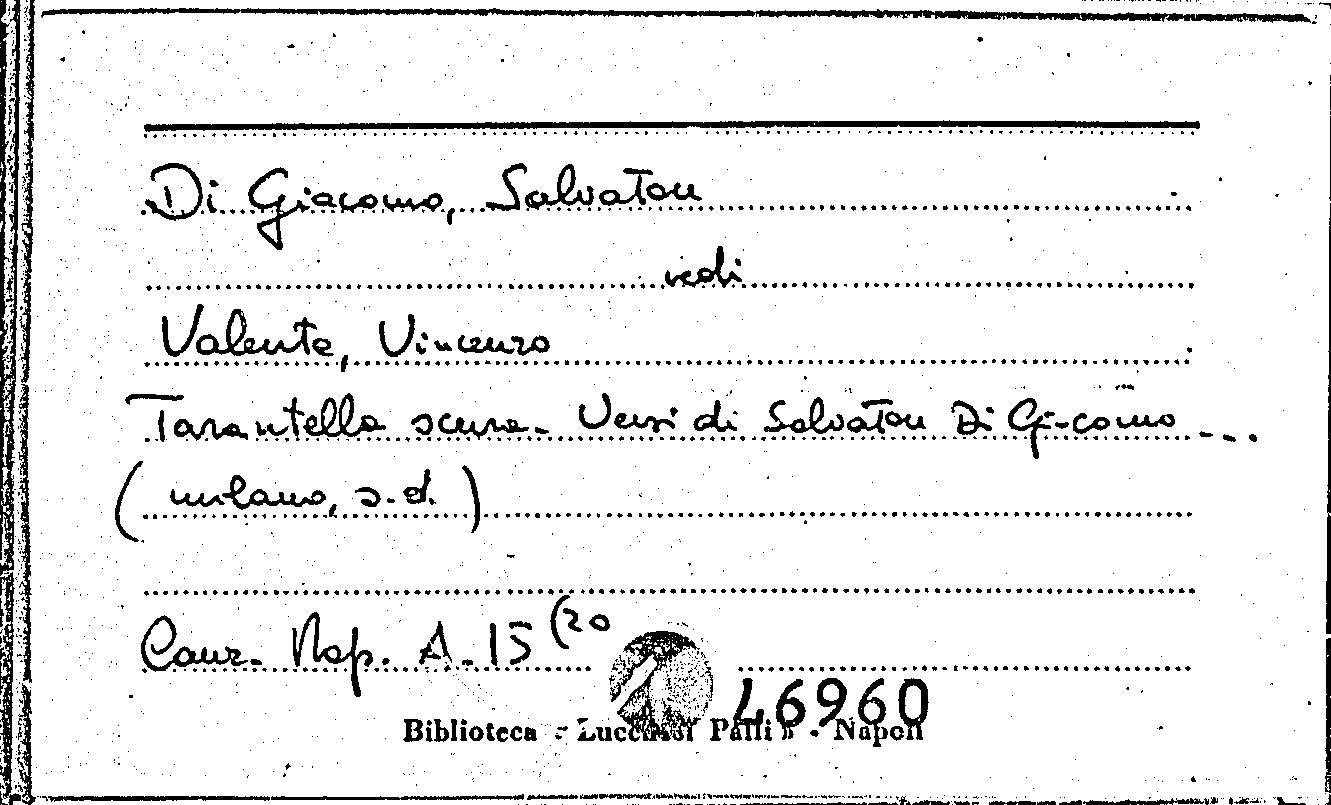 Di Giacomo, Salvatore
vedi
Valente, Vincenzo
Tarantella scura - Versi di Salvatore Di Giacomo ...
(milano, s.d.)
Canz. Nap. A. 15 (20
46960
Biblioteca « Lucchesi Palli » - Napoli